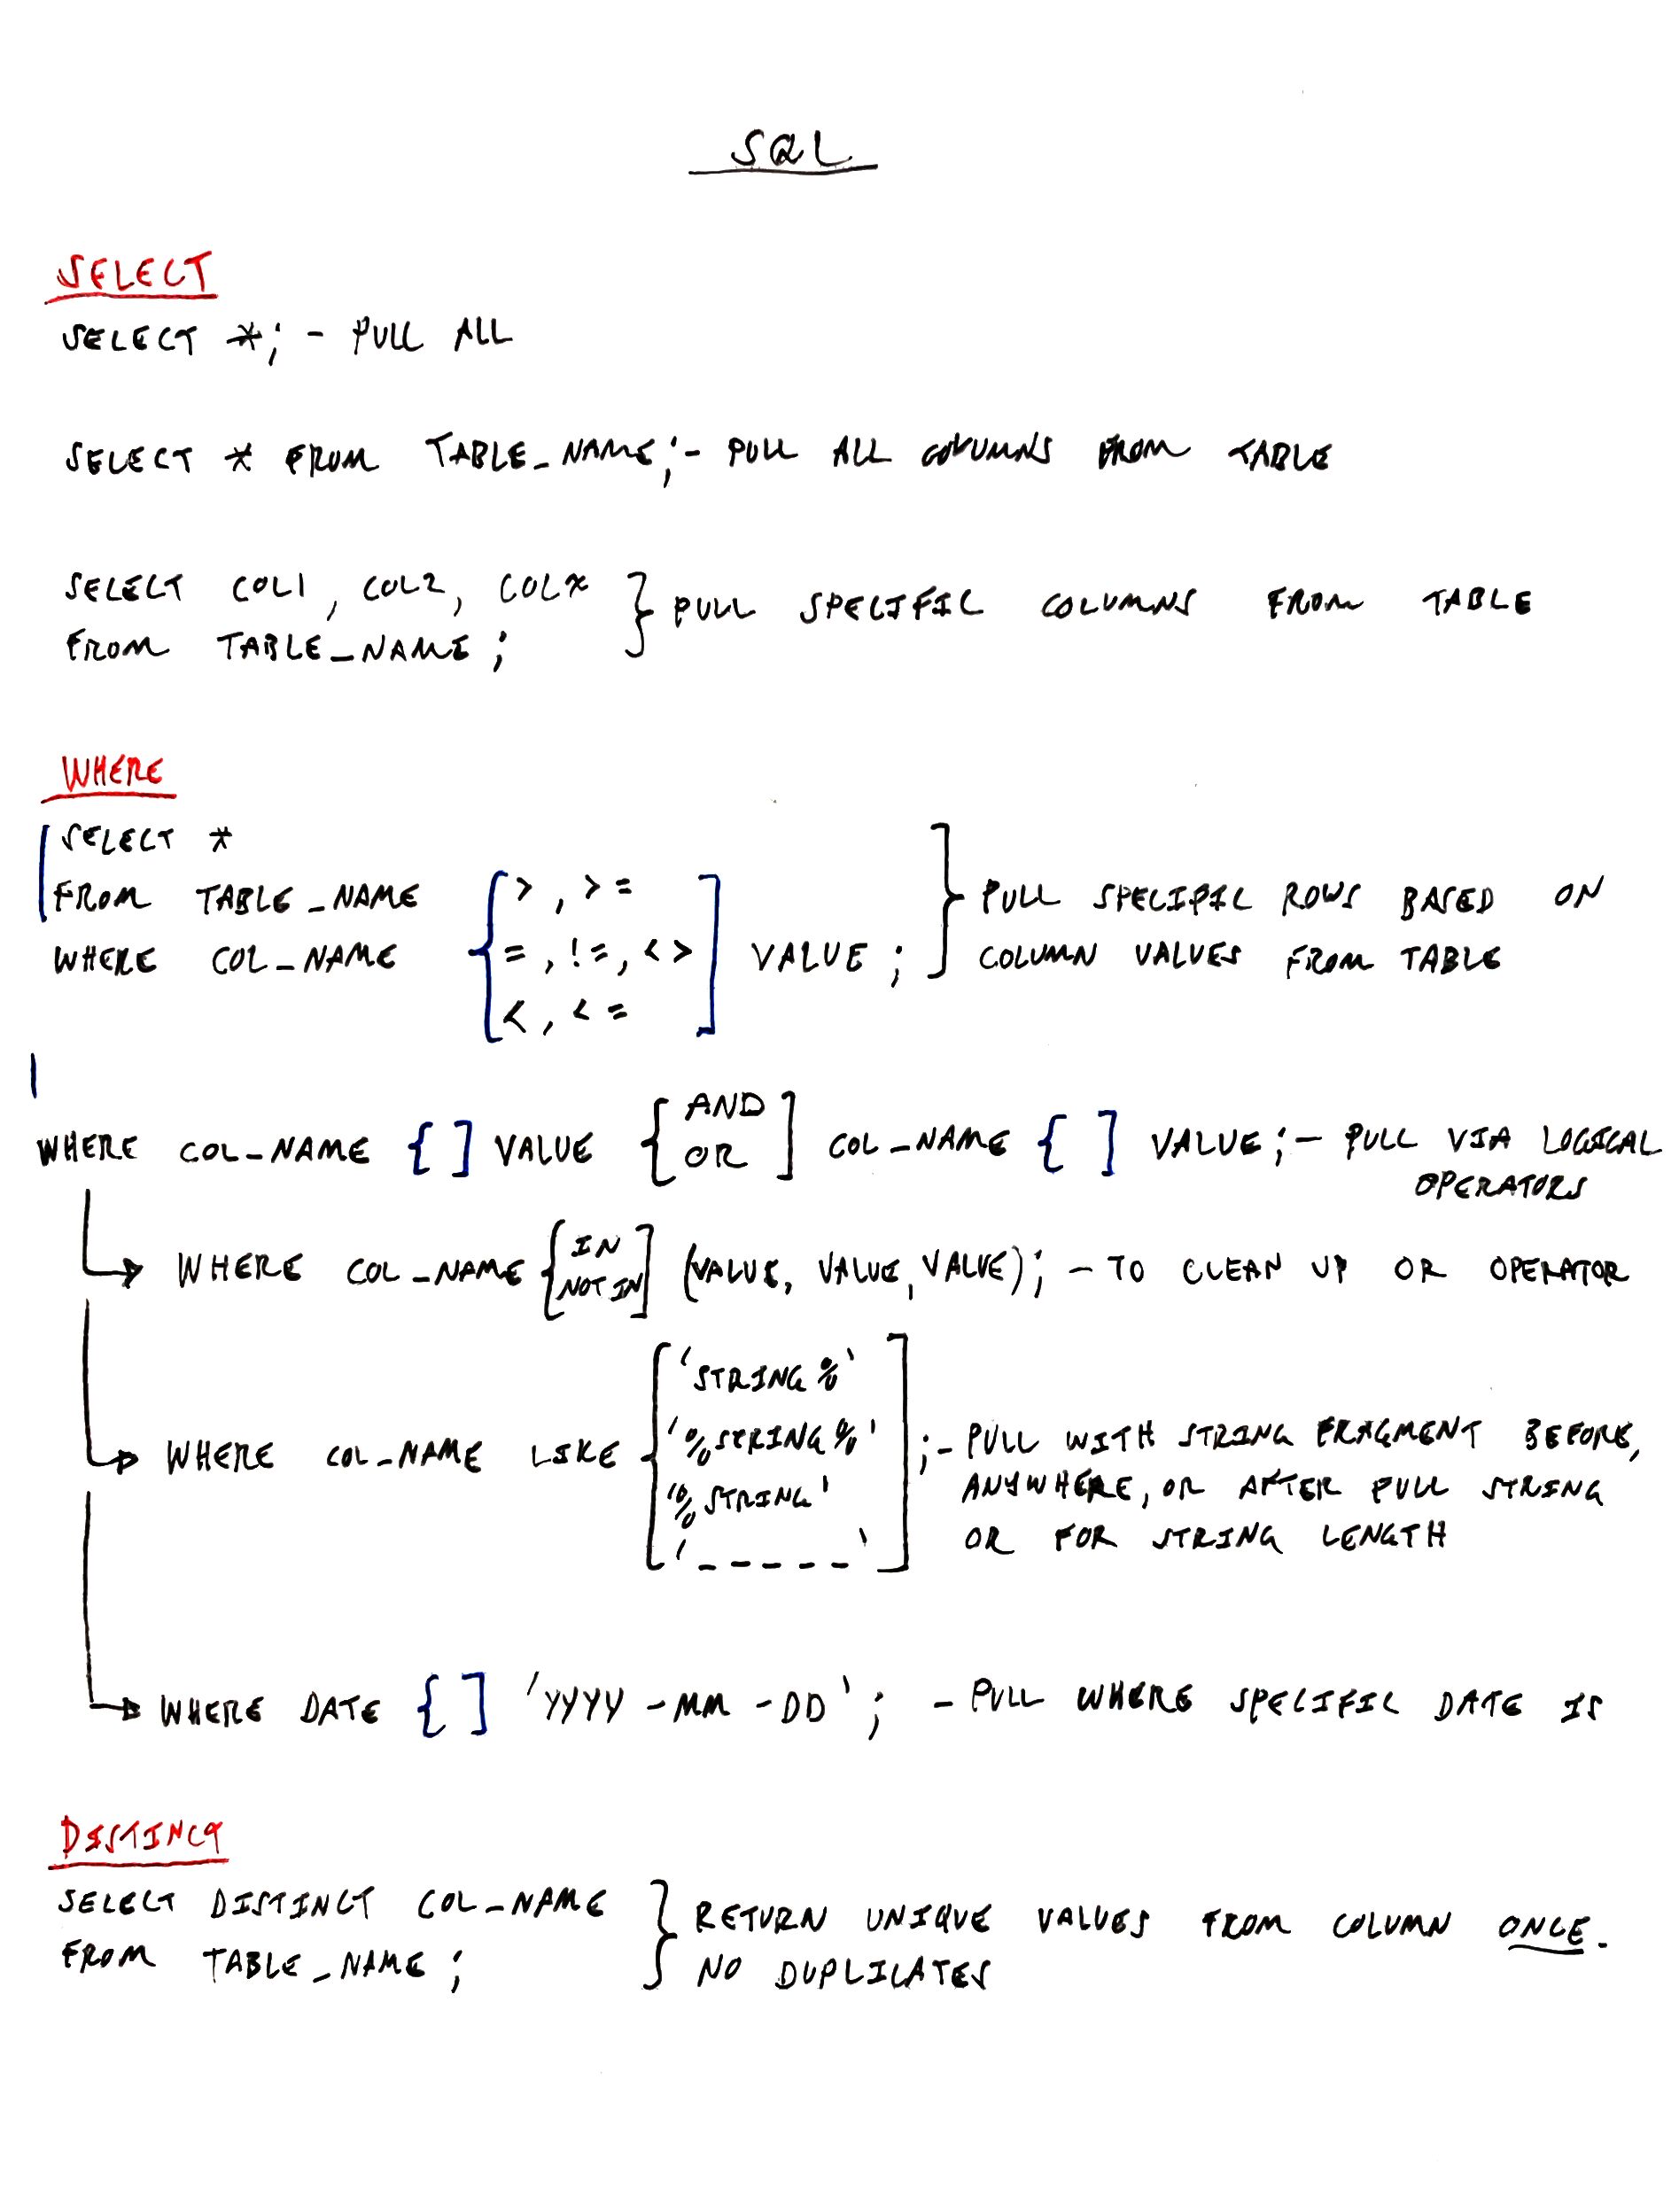 SQL
SELECT
SELECT *; - PULL ALL
SELECT * FROM TABLE_NAME; - PULL ALL COLUMNS FROM TABLE
SELECT COL1, COL2, COLX } PULL SPECIFIC COLUMNS FROM TABLE
FROM TABLE_NAME;
WHERE
SELECT *
FROM TABLE_NAME
WHERE COL_NAME { >, >=
=, !=, <>
<, <= ] VALUE; } PULL SPECIFIC ROWS BASED ON
COLUMN VALUES FROM TABLE
WHERE COL_NAME { ] VALUE { AND
OR ] COL_NAME { ] VALUE; - PULL VIA LOGICAL
OPERATORS
WHERE COL_NAME { IN
NOT IN ] (VALUE, VALUE, VALUE); - TO CLEAN UP OR OPERATOR
WHERE COL_NAME LIKE { 'STRING%'
'%STRING%'
'%STRING'
'_ _ _ _ _' ]; - PULL WITH STRING FRAGMENT BEFORE,
ANYWHERE, OR AFTER FULL STRING
OR FOR STRING LENGTH
WHERE DATE { ] 'YYYY-MM-DD'; - PULL WHERE SPECIFIC DATE IS
DISTINCT
SELECT DISTINCT COL_NAME } RETURN UNIQUE VALUES FROM COLUMN ONCE.
FROM TABLE_NAME; NO DUPLICATES